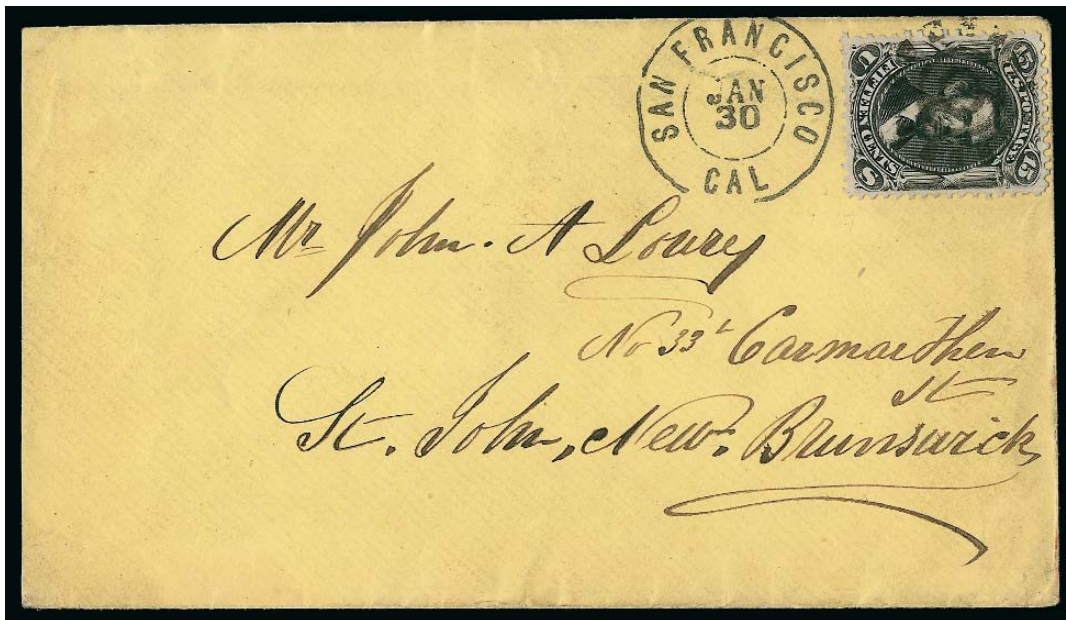 SAN FRANCISCO
JAN
30
CAL
U.S. POSTAGE
15 15
FIFTEEN CENTS
U S
Mr John. A Lowry
No 33 Carmarthen
St
St. John, New. Brunswick,